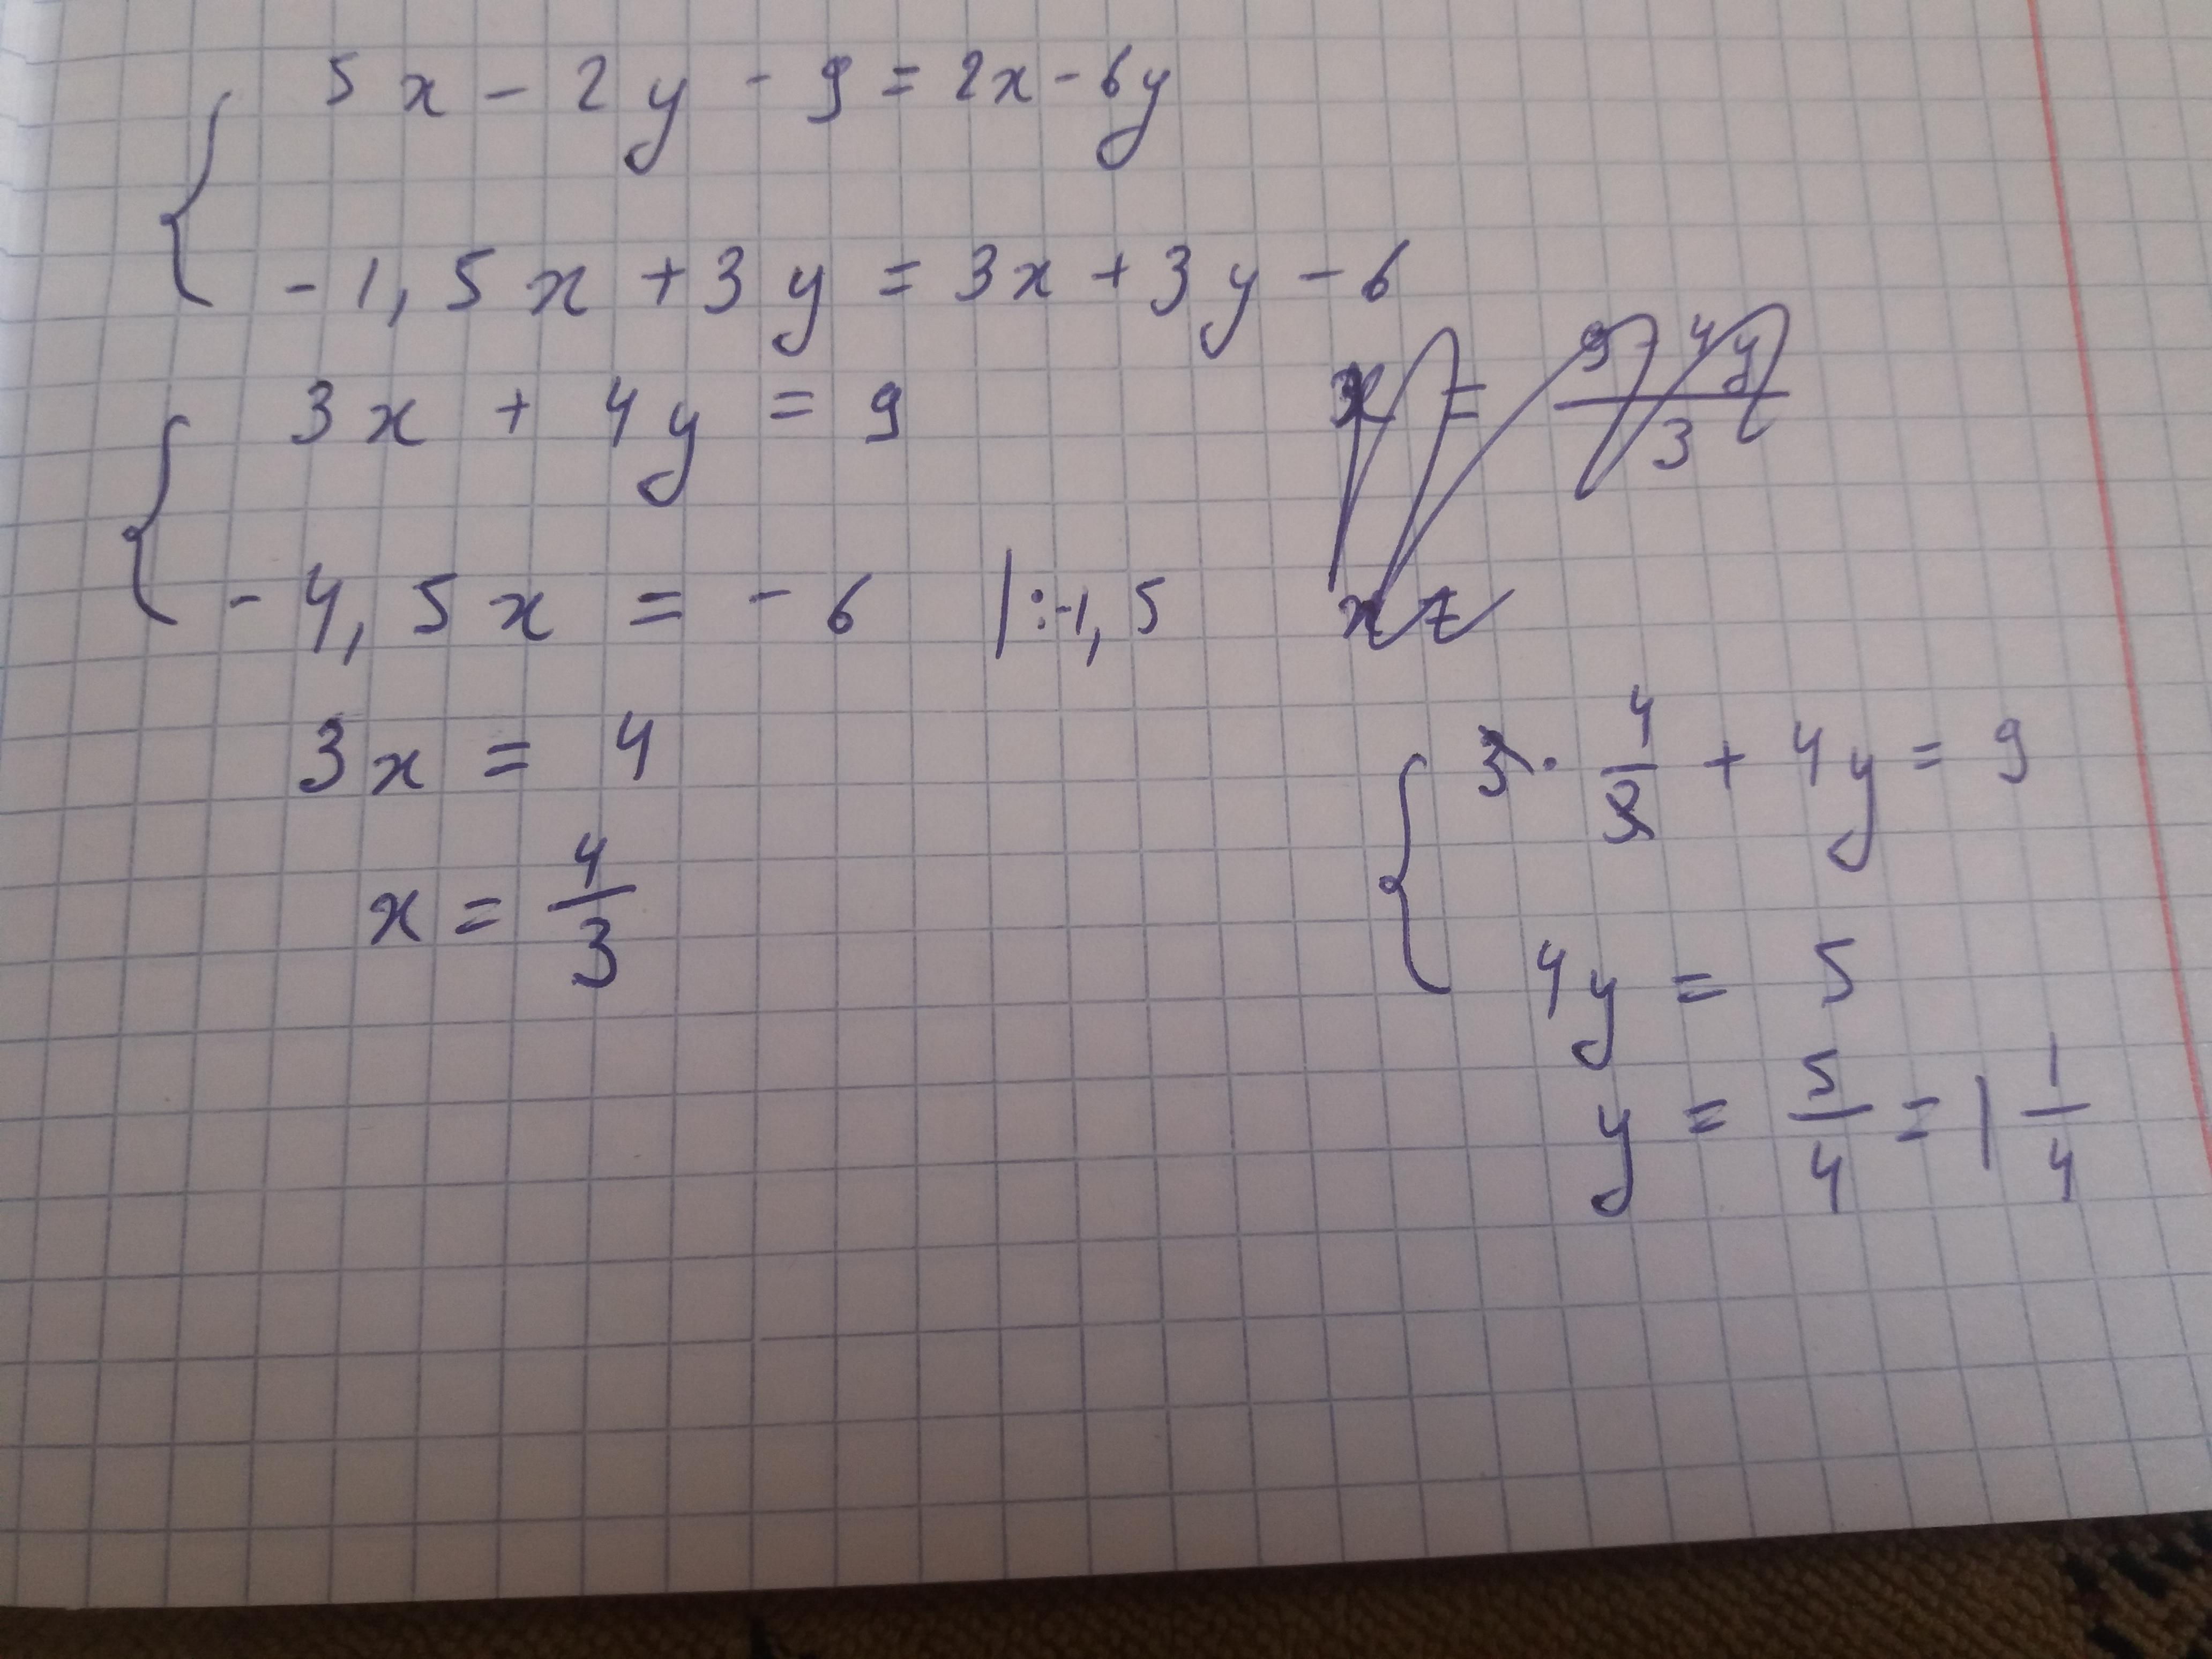 5x - 2y - 9 = 2x - 6y
-1,5x + 3y = 3x + 3y - 6
3x + 4y = 9
x = 9 - 4y / 3
-4,5x = -6 |:-1,5
x =
3x = 4
x = 4/3
3 · 4/3 + 4y = 9
4y = 5
y = 5/4 = 1 1/4